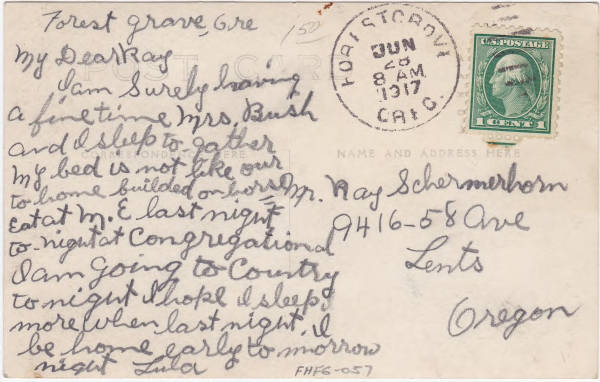 Forest Grove, Ore
150
My Dear Ray
I am Surely having
a fine time Mrs. Bush
and I sleep to-gather
My bed is not like our
to home builded on horse
Eat at M. E last night
to-night at Congregational
I am Going to Country
to night I hope I sleep
more when last night. I
be home early to morrow
night Lula
FHFG-057
POST CARD
CORRESPONDENCE HERE
NAME AND ADDRESS HERE
FOREST GROVE
JUN
28
8 AM
1917
OREG.
U.S. POSTAGE
1 CENT 1
Mr. Ray Schermerhorn
9416-58 Ave
Lents
Oregon